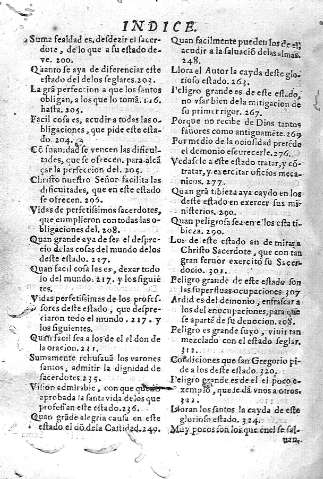 INDICE.
Suma fealdad es, desdezir el sacer-
dote, de lo que a su estado de-
ve. 200.
Quanto se aya de diferenciar este
estado del de los seglares. 202.
La grã perfection a que los santos
obligan, a los que lo tomã.
hasta. 205.
Facil cosa es, acudir a todas las o-
bligaciones, que pide este esta-
do. 204.
se vencen las dificul-
tades, que se ofrecen, para alcã
çar la perfeccion del. 205.
Christo nuestro Señor facilita las
dificultades, que en este estado
se ofrecen. 206.
Vidas de perfetissimos sacerdotes,
que cumplieron con todas las o-
bligaciones del. 208.
Quan grande aya de ser el despre-
cio de las cosas del mundo de los
deste estado. 217.
Quan facil cosa les es, dexar todo
lo del mundo. 217. y los siguiẽ
tes.
Vidas perfetissimas de los profes-
sores deste estado, que despre-
ciaron todo el mundo. 217. y
los siguientes.
Quan facil sea a los de el el don de
la oracion. 221.
Sumamente rehusavã los varones
santos, admitir la dignidad de
sacerdotes. 235.
Vision admirable, con que
aprobada la santa vida de los que
professan este estado. 236.
Quan grãde alegria causa en este
estado el dõ de la Castidad. 249.
Quan facilmente pueden los de el,
acudir a la salvaciõ de las almas.
248.
Llora el Autor la cayda deste glo-
rioso estado. 263.
Peligro grande es de este estado,
no usar bien de la mitigacion de
su primer rigor. 267.
Porque no recibe de Dios tantos
favores como antiguamẽte. 269
Por medio de la ociosidad pretẽde
el demonio escurecerle. 276.
Vedasele a este estado tratar, y cõ-
tratar, y exercitar oficios mecã-
nicos. 277.
Quan grã tibieza aya caydo en los
deste estado en exercer sus mi-
nisterios. 290.
Quan peligrosa sea en el esta ti-
bieza. 290.
Los de este estado an de mirar a
Christo Sacerdote, que con tan
gran fervor exercitò su Sacer-
docio. 301.
Peligro grande es de este estado son
las superfluas ocupaciones. 307
Ardid es del demonio, enfrascar a
los del en ocupaciones, para que
se aparte de su devocion. 308.
Peligro es grande suyo, vivir tan
mezclado con el estado seglar.
312.
Condiciones que san Gregorio pi-
de a los deste estado. 320.
Peligro grande es de el el poco e-
xemplo, que se dã unos a otros.
322.
Lloran los santos la cayda de este
glorioso estado. 324.
Muy pocos son los que en el se sal-
van.